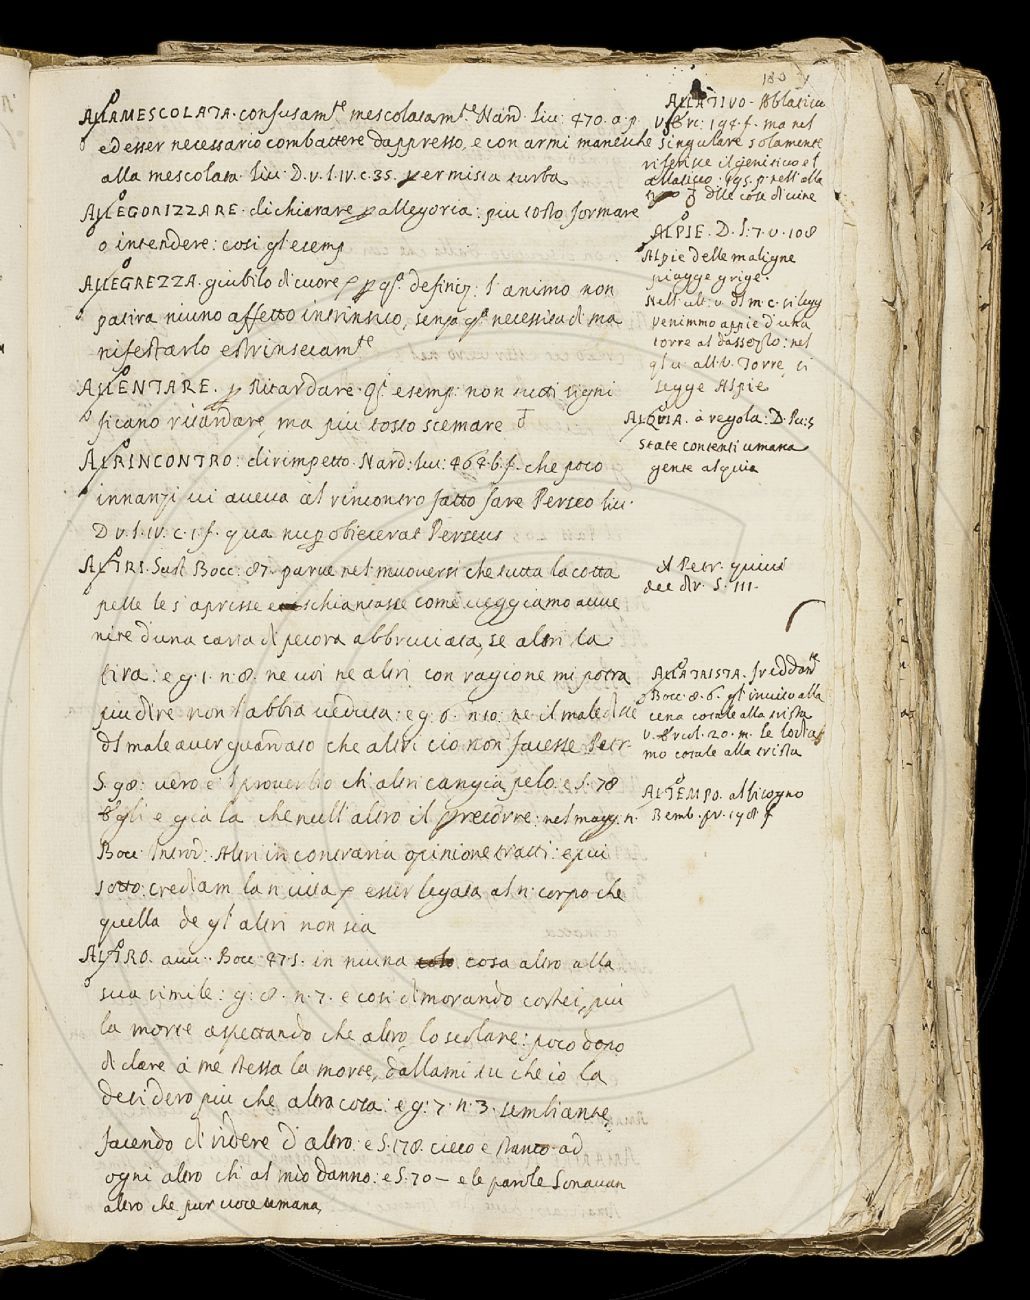 ALLAMESCOLATA. confusam.te mescolatam.te Nard. Liu: 470. a. p.
ed esser necessario combattere dappresso, e con armi manesche
alla mescolata. Liu. D. v. l. IV. c. 35. permista turba
ALLEGORIZZARE. dichiarare p allegoria: piu tosto formare
o intendere: cosi gl'esemp.
ALLEGREZZA. giubilo di cuore definiz: l'animo non
patira niuno affetto intrinsico, senza necessita di ma
nifestarlo estrinsecam.te
ALLENTARE. p Ritardare. esemp: non tutti signi
ficano ritardare, ma piu tosto scemare
ALRINCONTRO: dirimpetto. Nard: Liu: 464. b. f. che poco
innanzi ui aueua al rincontro fatto fare Perseo Liu.
D. v. l. IV. c. 1. f. qua nup obiecerat Perseus
ALTRI. Sust. Bocc: 87. parue nel muouersi che tutta la cotta
pelle le s'aprisse e schiantasse come ueggiamo auue
nire d'una carta di pecora abbruciata, se altri la
tira: e g. 1. n. 8. ne uoi ne altri con ragione mi potra
piu dire non l'abbia ueduta: e g. 8. n. 10. ne il male
dl male auer guardato che altri cio non facesse. Petr.
S. 98: uero e'l prouerbio ch'altri cangia pelo. e S. 78
Egli e gia la che null'altro il precorre: nel magg. n.
Bocc. Introd: Altri in contraria opinione tratti: e piu
sotto: crediam la n. uita p esser legata al n. corpo che
quella de gl'altri non sia
ALTRO. auu. Bocc. 47. 5. in niuna cosa altro alla
sua simile: g: 8. n. 7. e cosi dimorando costei, piu
la morte aspettando che altro, lo scolare: poco dono
di dare a me stessa la morte, dallami tu che io la
desidero piu che altra cosa: e g: 7. n. 3. sembiante
facendo di ridere d'altro: e S. 178. cieco e stanto ad
ogni altro ch'al mio danno: e S. 70 – e le parole Sonauan
altro che pur uoce umana
180
ALLATIVO. Ablatiuo
V. Erc: 194. f. ma nel
singulare solamente
riferisce il genitiuo e l'
allatiuo: 495. p. nell'alla
delle cose diuine
ALPIE. D. I. 7. v. 108
Alpie delle maligne
piagge grige.
Nell'ult: v. dl m. c. si legg
venimmo appie d'una
torre al dassezzo: nel
gl'u. all. v. Torre, si
legge Alpie
ALQUIA. a regola: D. Pu: 3
State contenti umana
gente alquia
Il Petr. quiui
dee dir. S. 111.
ALLATRISTA. freddam.te
Bocc. 8. 6. gl'inuito alla
cena cotale alla trista
V. Ercol. 20. m. le loda
mo cotale alla trista
ALTEMPO. al bisogno
Bemb. pr. 198. f